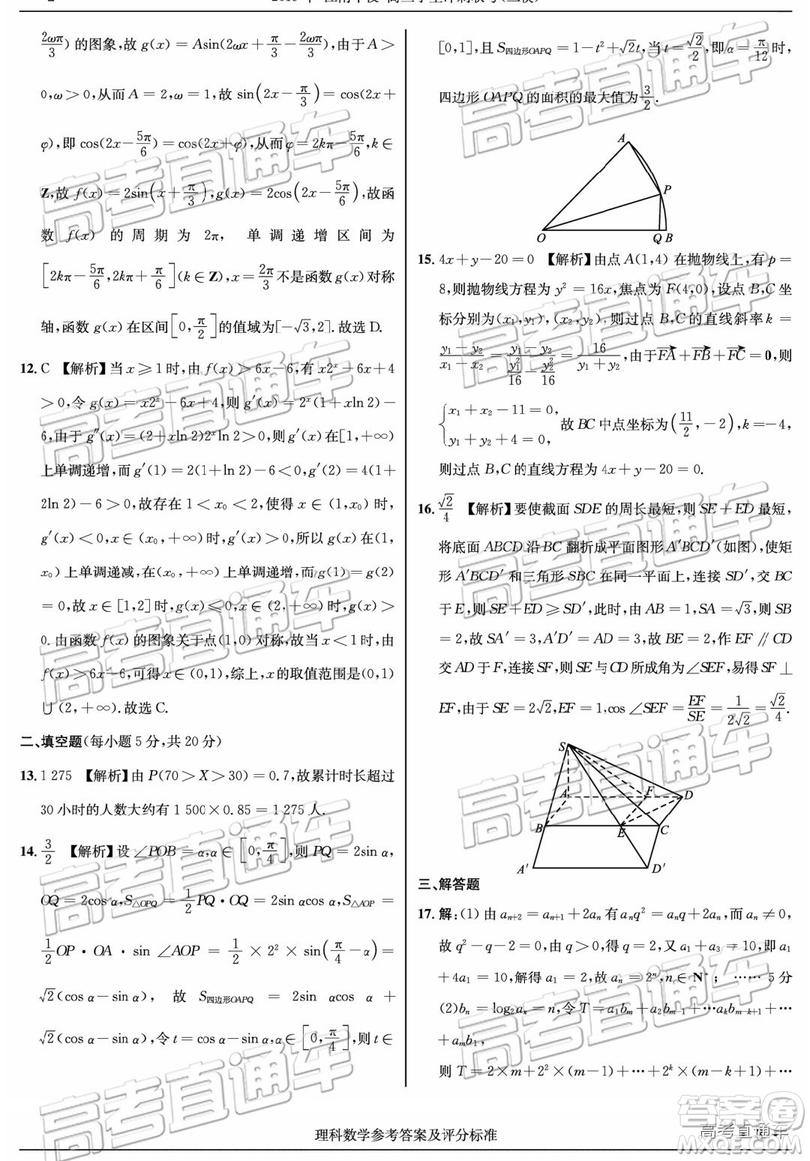 2ωπ/3) 的图象,故 g(x)=Asin(2ωx+π/3−2ωπ/3),由于 A>
0,ω>0,从而 A=2,ω=1,故 sin(2x−π/3)=cos(2x+
φ),即 cos(2x−5π/6)=cos(2x+φ),从而 φ=2kπ−5π/6,k∈
Z,故 f(x)=2sin(x+π/3),g(x)=2cos(2x−5π/6),故函
数 f(x) 的周期为 2π, 单调递增区间为
[2kπ−5π/6,2kπ+π/6](k∈Z),x=2π/3 不是函数 g(x)对称
轴,函数 g(x)在区间[0,π/2]的值域为[−√3,2].故选 D.
12. C 【解析】当 x≥1 时,由 f(x)>6x−6,有 x2ˣ−6x+4
>0,令 g(x)=x2ˣ−6x+4,则 g′(x)=2ˣ(1+xln 2)−
6,由于 g″(x)=(2+xln 2)2ˣln 2>0,则 g′(x)在[1,+∞)
上单调递增,而 g′(1)=2(1+ln 2)−6<0,g′(2)=4(1+
2ln 2)−6>0,故存在 1<x₀<2,使得 x∈(1,x₀)时,
g′(x)<0,x∈(x₀,+∞)时,g′(x)>0,所以 g(x)在(1,
x₀)上单调递减,在(x₀,+∞)上单调递增,而g(1)=g(2)
=0,故在 x∈[1,2]时,g(x)≤0,x∈(2,+∞)时,g(x)>
0.由函数 f(x)的图象关于点(1,0)对称,故当 x<1 时,由
f(x)>6x−6,可得 x∈(0,1),综上,x 的取值范围是(0,1)
∪(2,+∞).故选 C.
二、填空题(每小题 5 分,共 20 分)
13. 1 275 【解析】由 P(70>X>30)=0.7,故累计时长超过
30 小时的人数大约有 1 500×0.85=1 275 人.
14. 3/2 【解析】设∠POB=α,α∈[0,π/4],则 PQ=2sin α,
OQ=2cos α,S△OPQ=1/2 PQ·OQ=2sin αcos α,S△AOP=
1/2 OP·OA·sin∠AOP=1/2×2²×sin(π/4−α)=
√2(cos α−sin α), 故 S四边形OAPQ=2sin αcos α+
√2(cos α−sin α),令 t=cos α−sin α,α∈[0,π/4],则 t∈
[0,1],且 S四边形OAPQ=1−t²+√2t,当 t=√2/2,即α=π/12时,
四边形 OAPQ 的面积的最大值为3/2.
A
P
O
Q B
15. 4x+y−20=0 【解析】由点 A(1,4)在抛物线上,有 p=
8,则抛物线方程为 y²=16x,焦点为 F(4,0),设点 B,C 坐
标分别为(x₁,y₁),(x₂,y₂),则过点 B,C 的直线斜率 k=
(y₁−y₂)/(x₁−x₂)=(y₁−y₂)/(y₁²/16−y₂²/16)=16/(y₁+y₂),由于FA+FB+FC=0,则
{x₁+x₂−11=0, y₁+y₂+4=0, 故 BC 中点坐标为(11/2,−2),k=−4,
则过点 B,C 的直线方程为 4x+y−20=0.
16. √2/4 【解析】要使截面 SDE 的周长最短,则 SE+ED 最短,
将底面 ABCD 沿 BC 翻折成平面图形 A′BCD′(如图),使矩
形 A′BCD′和三角形 SBC 在同一平面上,连接 SD′,交 BC
于 E,则 SE+ED≥SD′,此时,由 AB=1,SA=√3,则 SB
=2,故 SA′=3,A′D′=AD=3,故 BE=2,作 EF∥CD
交 AD 于 F,连接 SF,则 SE 与 CD 所成角为∠SEF,易得 SF⊥
EF,由于 SE=2√2,EF=1,cos∠SEF=EF/SE=1/(2√2)=√2/4.
S
A
F
D
B
E
C
A′
D′
三、解答题
17. 解:(1)由 aₙ₊₂=aₙ₊₁+2aₙ 有 aₙq²=aₙq+2aₙ,而 aₙ≠0,
故 q²−q−2=0,由 q>0,则 q=2,又 a₁+a₃=10,即 a₁
+4a₁=10,解得 a₁=2,故 aₙ=2ⁿ,n∈N*; …… 5 分
(2)bₙ=log₂aₙ=n,令 T=a₁bₘ+a₂bₘ₋₁+…aₖbₘ₋ₖ₊₁+…+
aₘb₁,
则 T=2×m+2²×(m−1)+…+2ᵏ×(m−k+1)+…+2ᵐ
理科数学参考答案及评分标准
高考直通车
答案圈
MXQE.COM